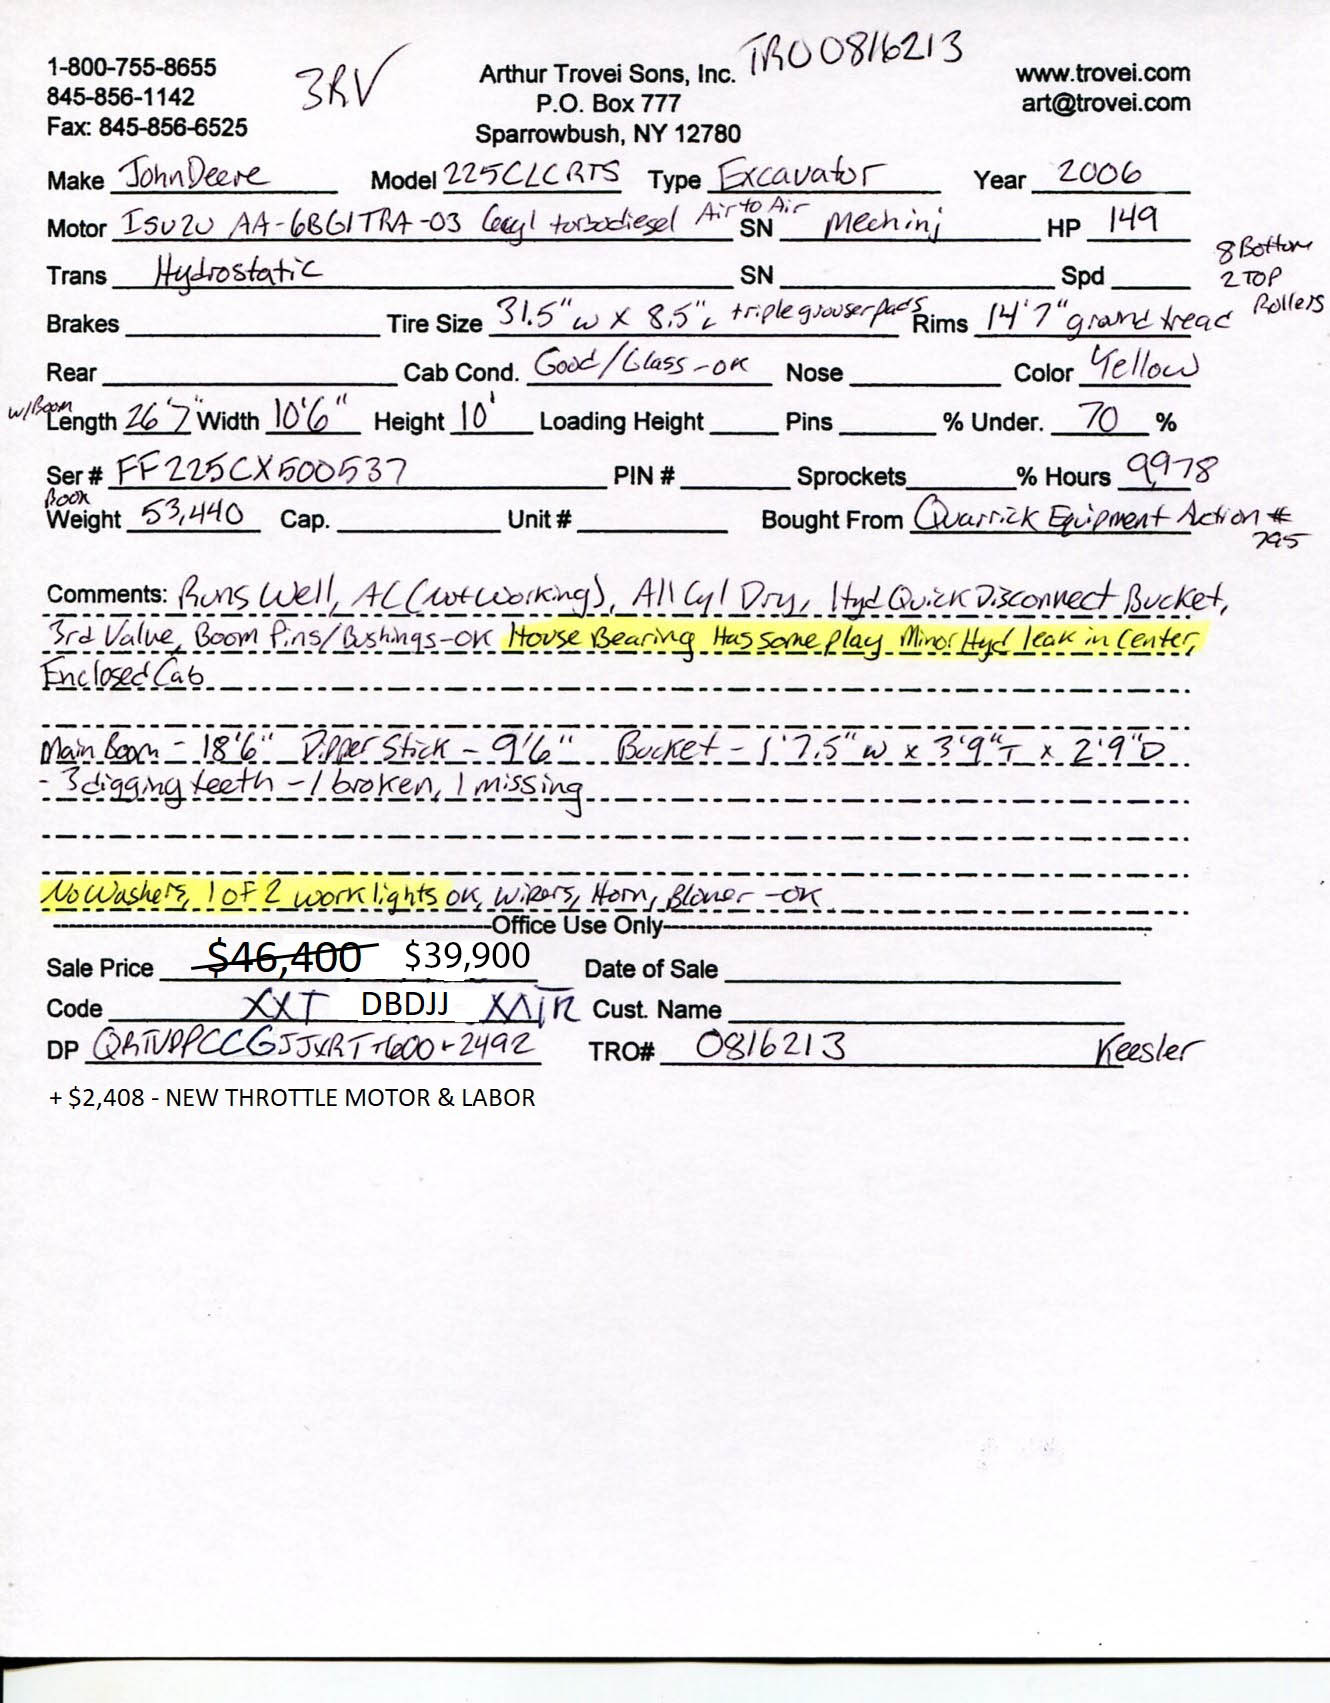 1-800-755-8655 3RV Arthur Trovei Sons, Inc. TRO0816213 www.trovei.com
845-856-1142 P.O. Box 777 art@trovei.com
Fax: 845-856-6525 Sparrowbush, NY 12780
Make John Deere Model 225CLCRTS Type Excavator Year 2006
Motor ISUZU AA-6BG1TRA-03 6cyl turbodiesel Air to Air SN Mech inj HP 149
Trans Hydrostatic SN Spd
8 Bottom
2 TOP
Rollers
Brakes Tire Size 31.5" w x 8.5" L triple grouser pads Rims 14'7" ground tread
Rear Cab Cond. Good/Glass-OK Nose Color Yellow
w/Boom Length 26'7" Width 10'6" Height 10' Loading Height Pins % Under. 70 %
Ser # FF225CX500537 PIN # Sprockets % Hours 9,978
Book
Weight 53,440 Cap. Unit # Bought From Quarrick Equipment Action #
795
Comments: Runs Well, AC (Not Working), All Cyl Dry, Hyd Quick Disconnect Bucket,
3rd Valve, Boom Pins/Bushings-OK House Bearing Has some play Minor Hyd leak in center,
Enclosed Cab
Main Boom - 18'6" Dipper Stick - 9'6" Bucket - 1'7.5" w x 3'9"T x 2'9"D
- 3 digging teeth - 1 broken, 1 missing
No Washers, 1 of 2 work lights OK, Wipers, Horn, Blower - OK
Office Use Only
Sale Price $46,400 $39,900 Date of Sale
Code XXT DBDJJ Cust. Name
DP TRO# 0816213 Keesler
+ $2,408 - NEW THROTTLE MOTOR & LABOR